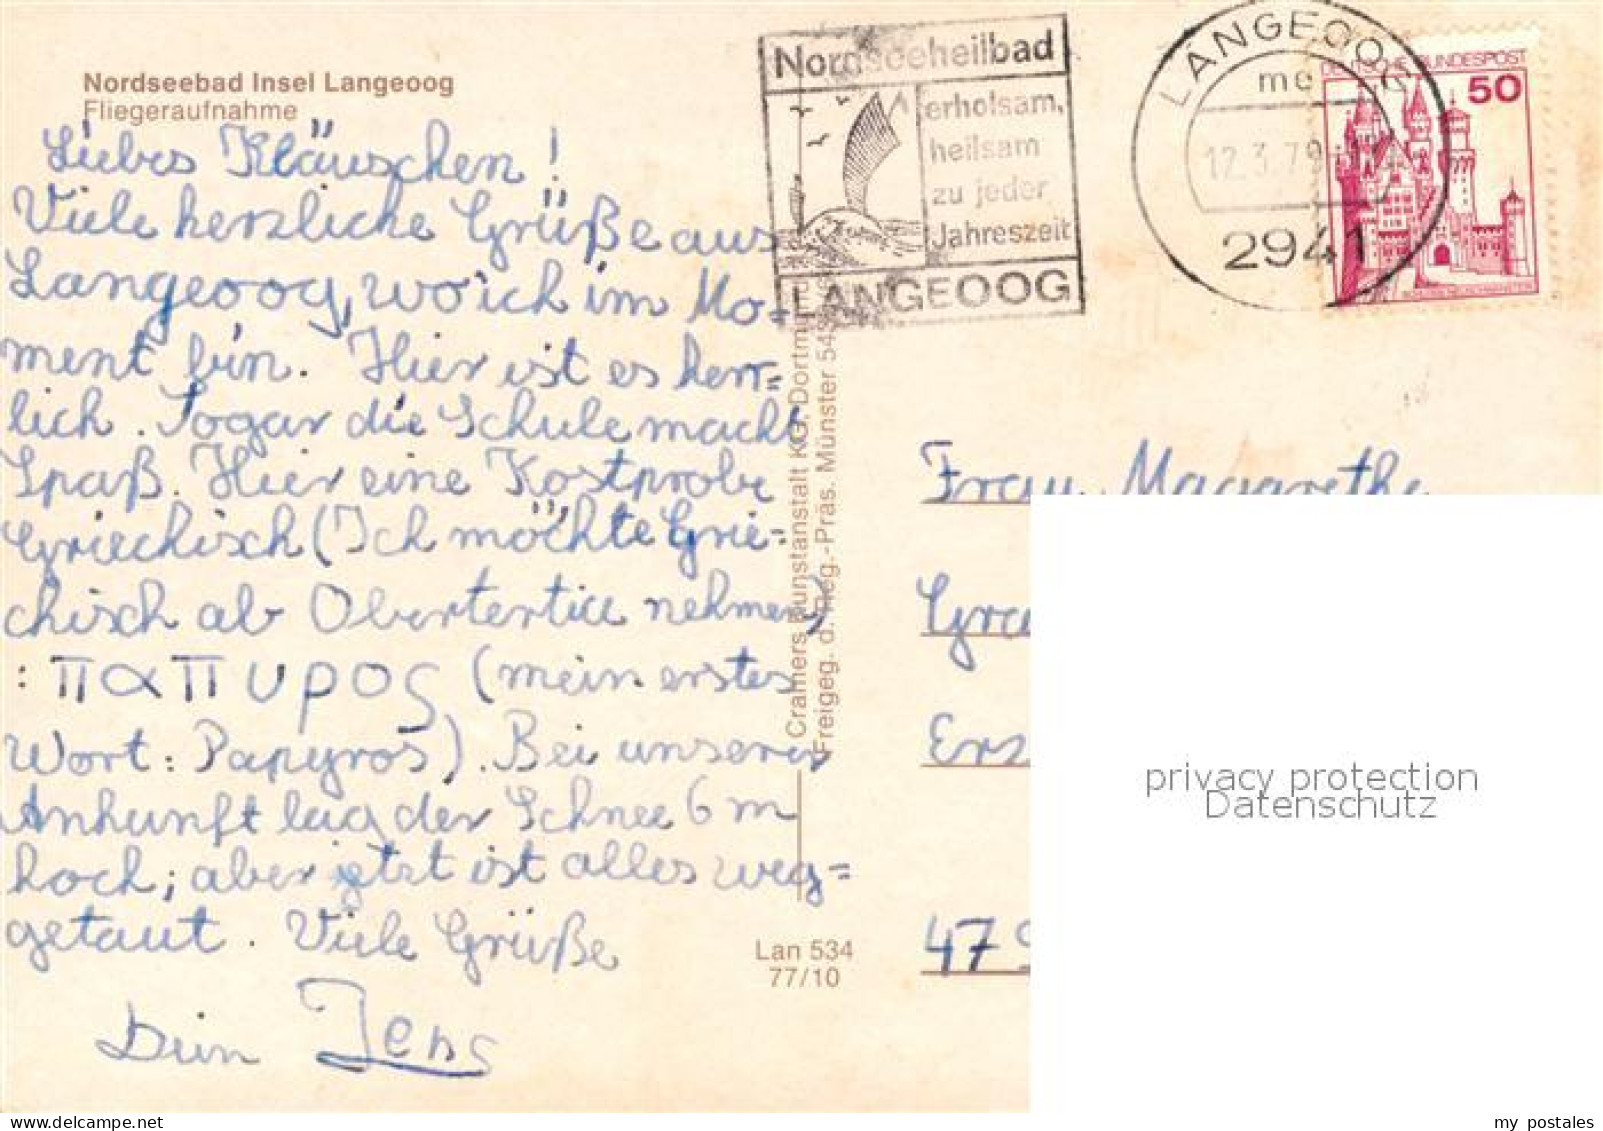 Nordseebad Insel Langeoog
Fliegeraufnahme
Liebes Kläuschen!
Viele herzliche Grüße aus
Langeoog, wo ich im Mo=
ment bin. Hier ist es herr=
lich. Sogar die Schule macht
Spaß. Hier eine Kostprobe
Griechisch (Ich möchte Grie-
chisch ab Obertertia nehmen)
: παπυρος (mein erstes
Wort: Papyros). Bei unserer
Ankunft lag der Schnee 6 m
hoch; aber jetzt ist alles weg=
getaut. Viele Grüße
Dein Jens
Cramers Kunstanstalt KG, Dortmund
Freigeg. d. Reg.-Präs. Münster
Lan 534
77/10
Nordseeheilbad
erholsam,
heilsam
zu jeder
Jahreszeit
LANGEOOG
LANGEOOG
me
12.3.79
2941
DEUTSCHE BUNDESPOST
50
Frau Magarethe
privacy protection
Datenschutz
my postales